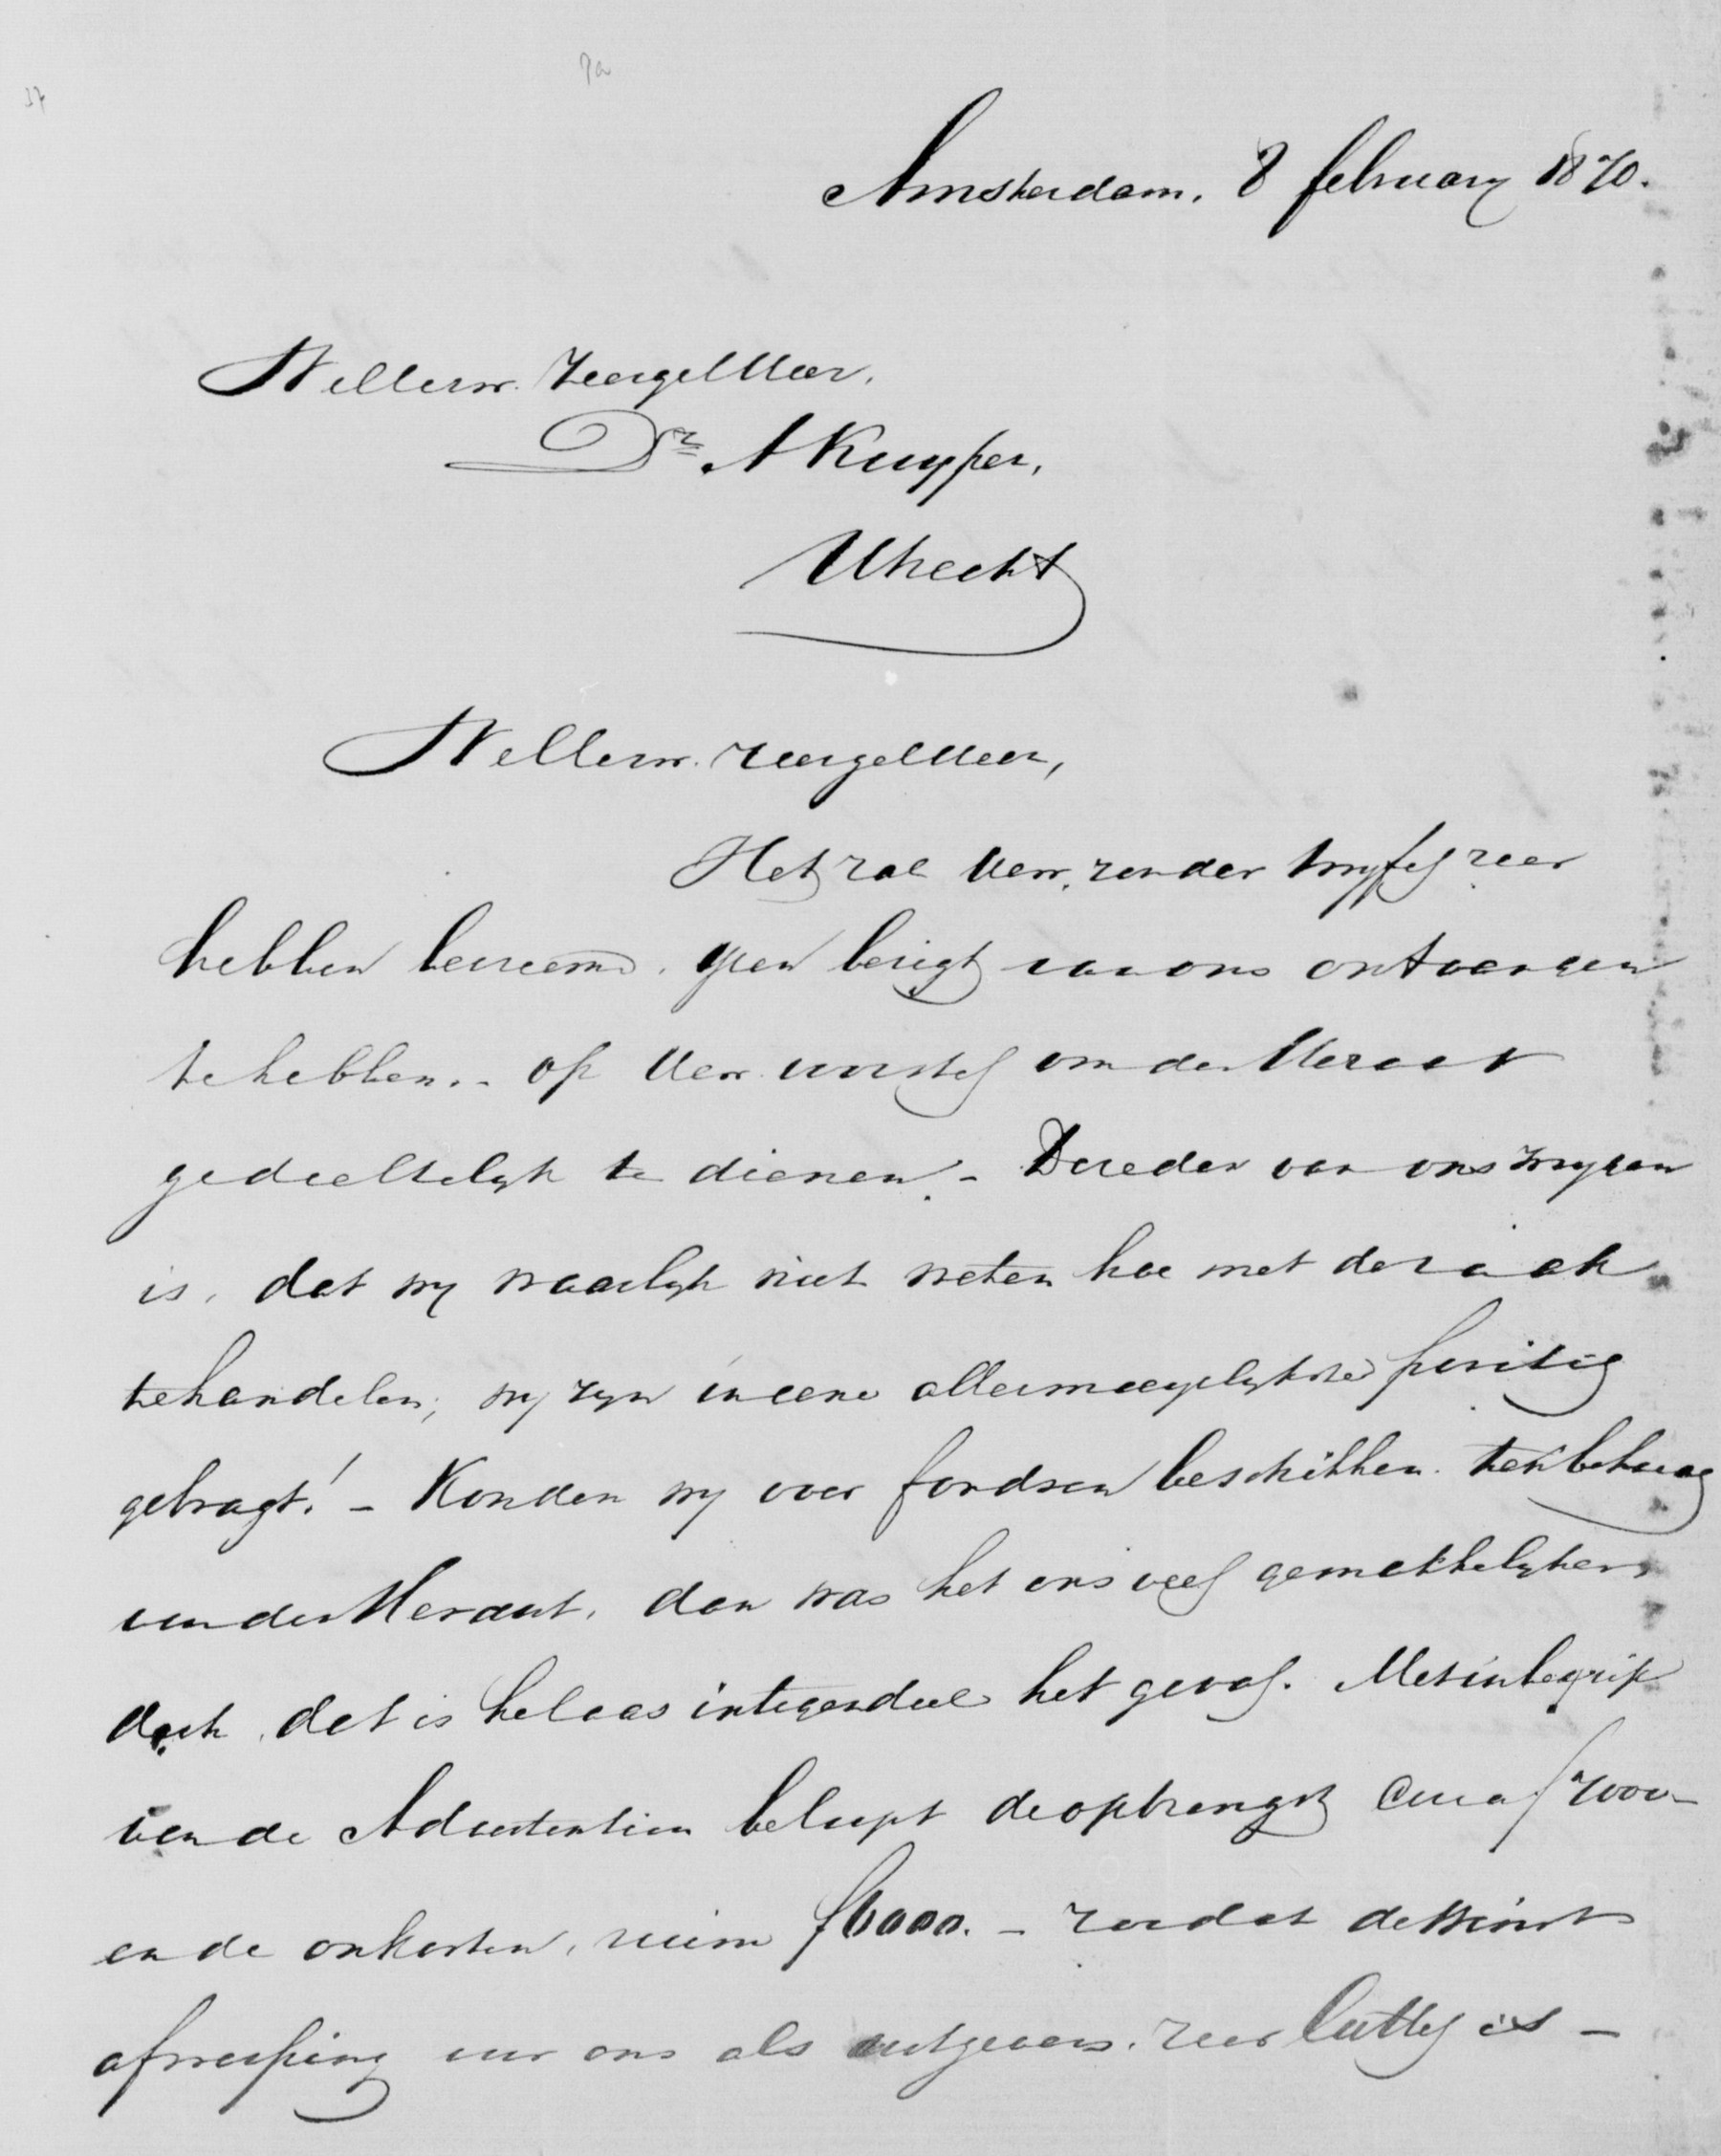 37
7a
Amsterdam, 8 february 1870.
WelEerw. ZeergelHeer,
Dr A Kuyper,
Utrecht
WelEerw. ZeergelHeer,
Het zal UEerw. zonder twyfel zeer
hebben bevreemd, geen berigt van ons ontvangen
te hebben. - op UEerw. voorstel om den Heraut
gedeeltelyk te dienen. - De reden van ons zwygen
is, dat wy waarlyk niet weten hoe met de zaak
te handelen; wy zyn in eene allermoeyelykste positie
gebragt! - Konden wy over fondsen beschikken ten behoeve
van den Heraut, dan was het ons veel gemakkelyker,
doch dat is helaas integendeel het geval. Met inbegrip
van de Advertentien beloopt de opbrengst circa f 7000 -
en de onkosten, ruim f 6000. - zoodat de winst
afwerping voor ons als uitgevers, zeer luttel is -